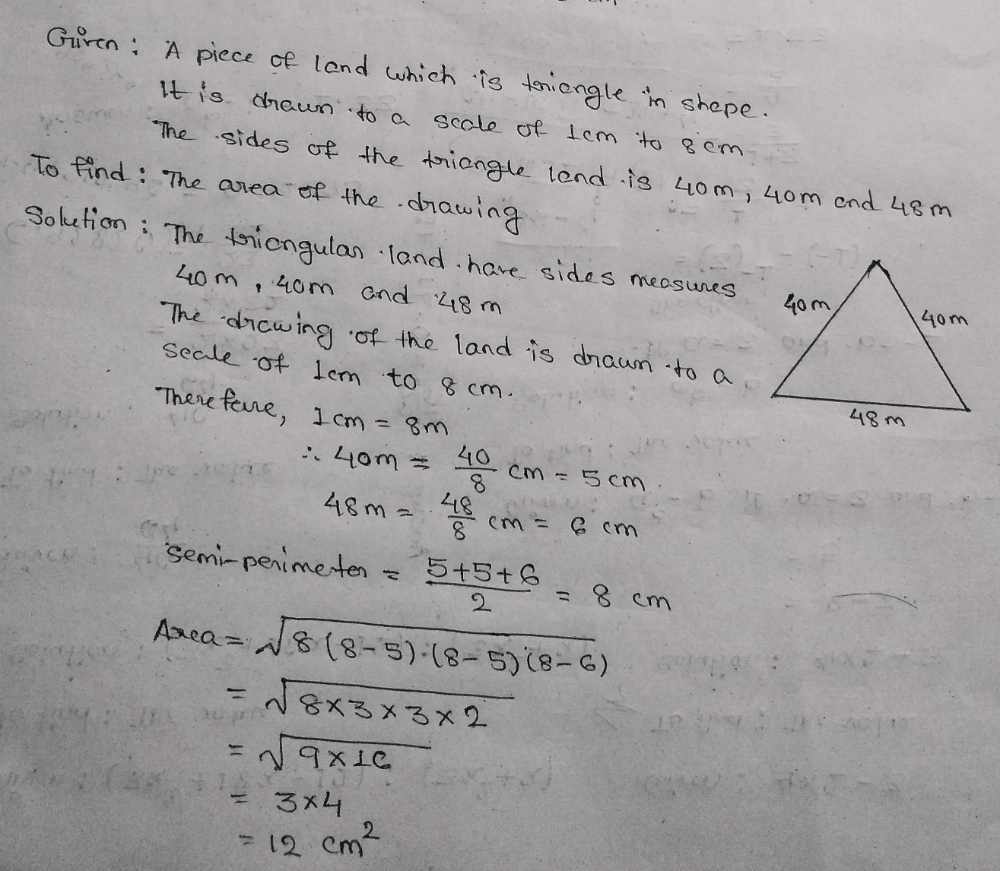 Given : A piece of land which is triangle in shape.
It is drawn to a scale of 1cm to 8cm.
The sides of the triangle land is 40m, 40m and 48m
To find : The area of the drawing
Solution : The triangular land have sides measures
40m, 40m and 48m
The drawing of the land is drawn to a
scale of 1cm to 8cm.
Therefore, 1cm = 8m
∴ 40m = 40/8 cm = 5cm.
48m = 48/8 cm = 6 cm
Semi-perimeter = (5+5+6)/2 = 8 cm
Area = √8(8-5)·(8-5)(8-6)
= √8×3×3×2
= √9×16
= 3×4
= 12 cm²
40m
40m
48m